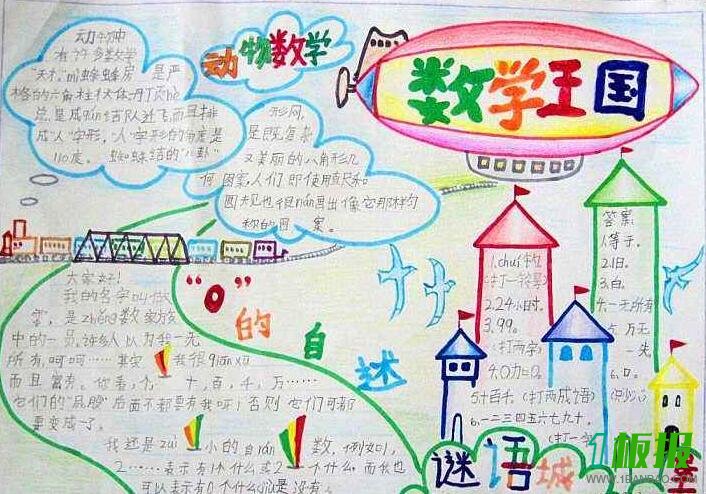 动物数学
数学王国
动物中
有许多数学
"天才"mì蜂蜂房是严
格的六角柱状体。丹顶hè
总是成qún结队迁飞,而且排
成"人"字形,"人"字形的角度是
110度。蜘蛛结的"八卦"
形网,
是既复杂
又美丽的八角形几
何图案,人们即使用直尺和
圆规也很nán画出像它那样匀
称的图案。
"0"的自述
大家好!
我的名字叫什么
零,是zhěng数家族
中的一员。许多人以为我一无
所有,呵呵……其实我很qiān xū
而且富有。你看,个、十、百、千、万……
它们的"屁股"后面不都要有我呀!否则它们可都
要变成了。
我还是zuì小的自rán数,例如1,
2……表示有1个什么或2个什么,而我也
可以表示有0个什么jiù是没有。
1.
(打一
2.24小时。
3.99。
(打一字)
4.0
5.千百十(打两成语)
6.一二三四五六七九十。
(打一字)
答案
1.等于。
2.旧。
3.白。
4.一无所有
5.万无
一失
6.口。
谜语城
板报
WWW.1BANBAO.COM